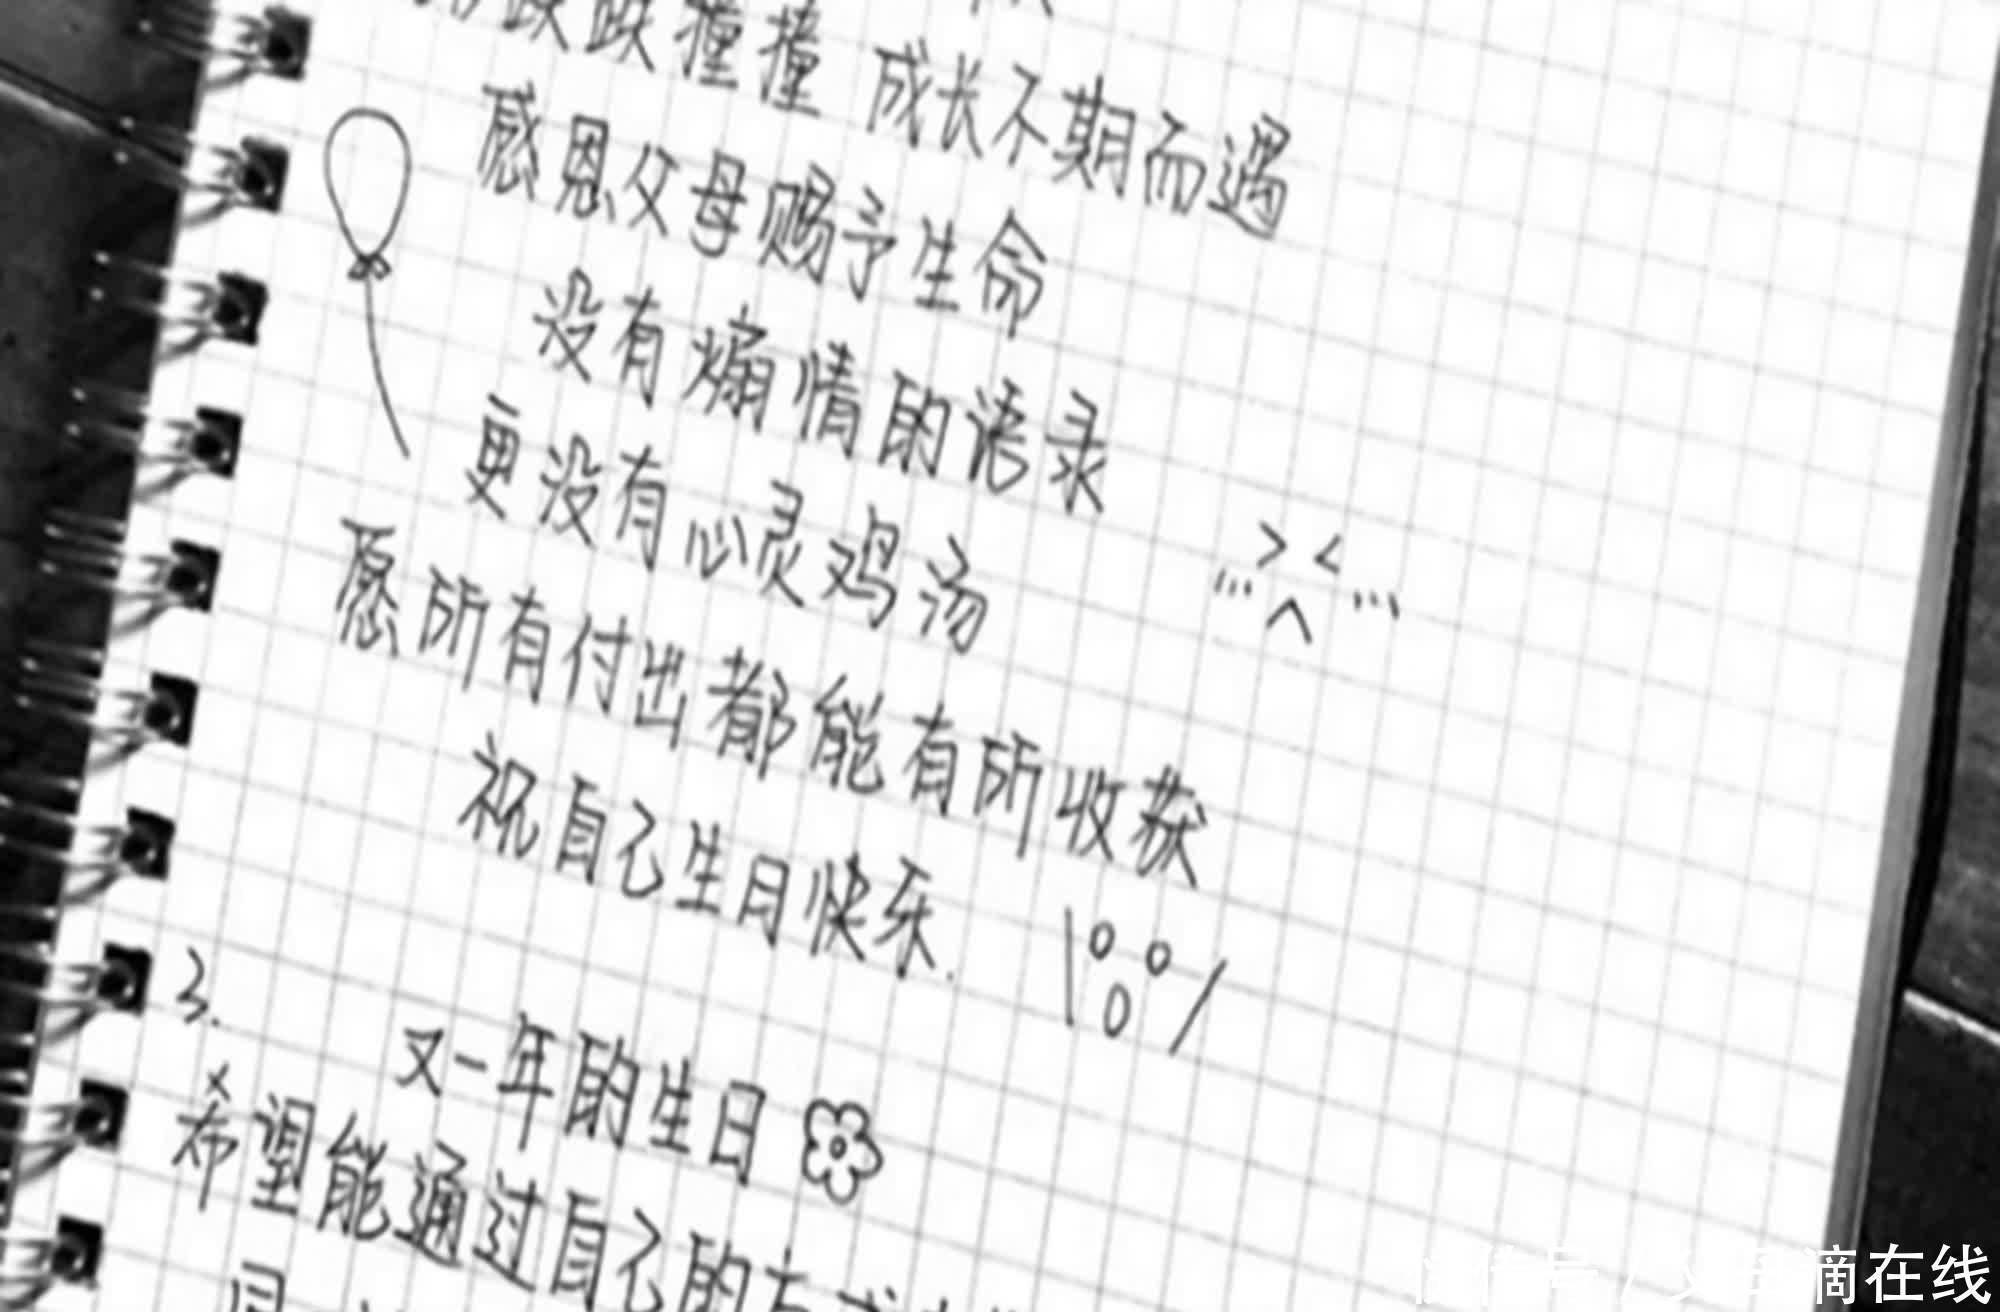 跌跌撞撞 成长不期而遇
感恩父母赐予生命
没有煽情的语录
更没有心灵鸡汤
愿所有付出都能有所收获
祝自己生日快乐.
3.
又一年的生日
希望能通过自己的方式
滴在线